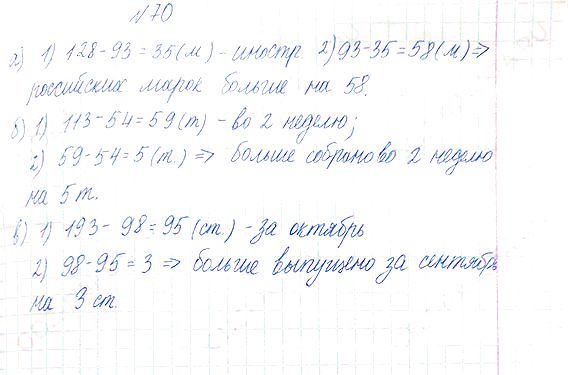 №70
а) 1) 128-93=35(м)-иностр. 2) 93-35=58(м)=>
российских марок больше на 58.
б) 1) 113-54=59(т)-во 2 неделю;
2) 59-54=5(т.)=> больше собрано во 2 неделю
на 5 т.
в) 1) 193-98=95(ст.)-за октябрь
2) 98-95=3=> больше выпущено за сентябрь
на 3 ст.